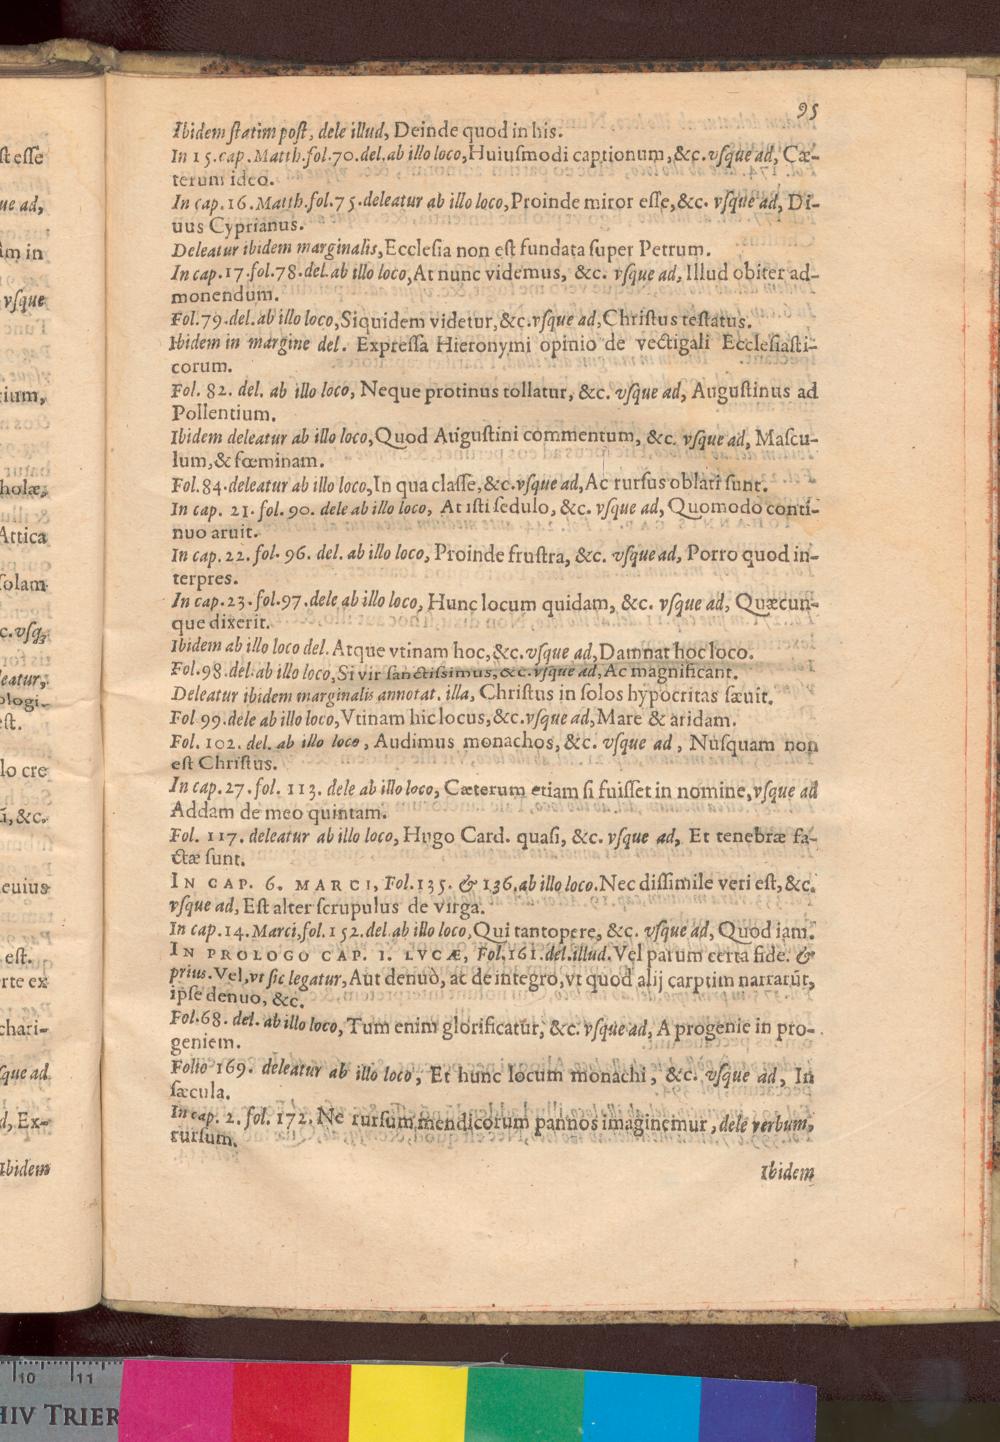 95
Ibidem ſtatim poſt, dele illud, Deinde quod in his.
In 15.cap.Matth.fol.70.del.ab illo loco,Huiuſmodi captionum,&c.vſque ad, Cæ-
terum ideo.
In cap.16.Matth.fol.75.deleatur ab illo loco,Proinde miror eſſe,&c. vſque ad, Di-
uus Cyprianus.
Deleatur ibidem marginalis,Eccleſia non eſt fundata ſuper Petrum.
In cap.17.fol.78.del.ab illo loco,At nunc videmus, &c. vſque ad,Illud obiter ad-
monendum.
Fol.79.del.ab illo loco,Siquidem videtur,&c.vſque ad,Chriſtus teſtatus.
Ibidem in margine del. Expreſſa Hieronymi opinio de vectigali Eccleſiaſti-
corum.
Fol. 82. del. ab illo loco, Neque protinus tollatur, &c. vſque ad, Auguſtinus ad
Pollentium.
Ibidem deleatur ab illo loco,Quod Auguſtini commentum, &c. vſque ad, Maſcu-
lum,&fœminam.
Fol.84.deleatur ab illo loco,In qua claſſe,&c.vſque ad,Ac rurſus oblati ſunt.
In cap. 21.fol. 90. dele ab illo loco, At iſti ſedulo, &c. vſque ad, Quomodo conti-
nuo aruit.
In cap. 22. fol. 96. del. ab illo loco, Proinde fruſtra, &c. vſque ad, Porro quod in-
terpres.
In cap.23.fol.97.dele ab illo loco, Hunc locum quidam, &c. vſque ad, Quæcun-
que dixerit.
Ibidem ab illo loco del.Atque vtinam hoc,&c.vſque ad,Damnat hoc loco.
Fol.98.del.ab illo loco,Si vir ſanctiſſimus,&c.vſque ad,Ac magnificant.
Deleatur ibidem marginalis annotat. illa, Chriſtus in ſolos hypocritas ſæuit.
Fol 99.dele ab illo loco,Vtinam hic locus,&c.vſque ad,Mare & aridam.
Fol. 102. del. ab illo loco, Audimus monachos, &c. vſque ad, Nuſquam non
eſt Chriſtus.
In cap.27.fol. 113. dele ab illo loco, Cæterum etiam ſi fuiſſet in nomine,vſque ad
Addam de meo quintam.
Fol. 117. deleatur ab illo loco, Hugo Card. quaſi, &c. vſque ad, Et tenebræ fa-
ctæ ſunt.
IN CAP. 6. MARCI, Fol.135. & 136.ab illo loco.Nec diſſimile veri eſt,&c.
vſque ad, Eſt alter ſcrupulus de virga.
In cap.14.Marci,fol.152.del.ab illo loco,Qui tantopere, &c. vſque ad, Quod iam.
IN PROLOGO CAP. I. LVCÆ, Fol.161.del.illud.Vel parum certa fide. &
prius.Vel,vt ſic legatur,Aut denuò, ac de integro,vt quod alij carptim narrarūt,
ipſe denuo, &c.
Fol.68. del. ab illo loco,Tum enim glorificatur, &c. vſque ad, A progenie in pro-
geniem.
Folio 169. deleatur ab illo loco, Et hunc locum monachi, &c. vſque ad, In
ſæcula.
In cap. 2. fol. 172.Ne rurſum mendicorum pannos imaginemur, dele verbum,
rurſum.
Ibidem
ſt eſſe
ue ad,
m in
vſque
tium,
holæ,
Attica
ſolam
c.vſq;
leatur,
ologi-
eſt.
lo cre
&c.
euius
eſt.
rte ex
chari-
ſque ad
d, Ex-
Ibidem
10 11
HIV TRIER